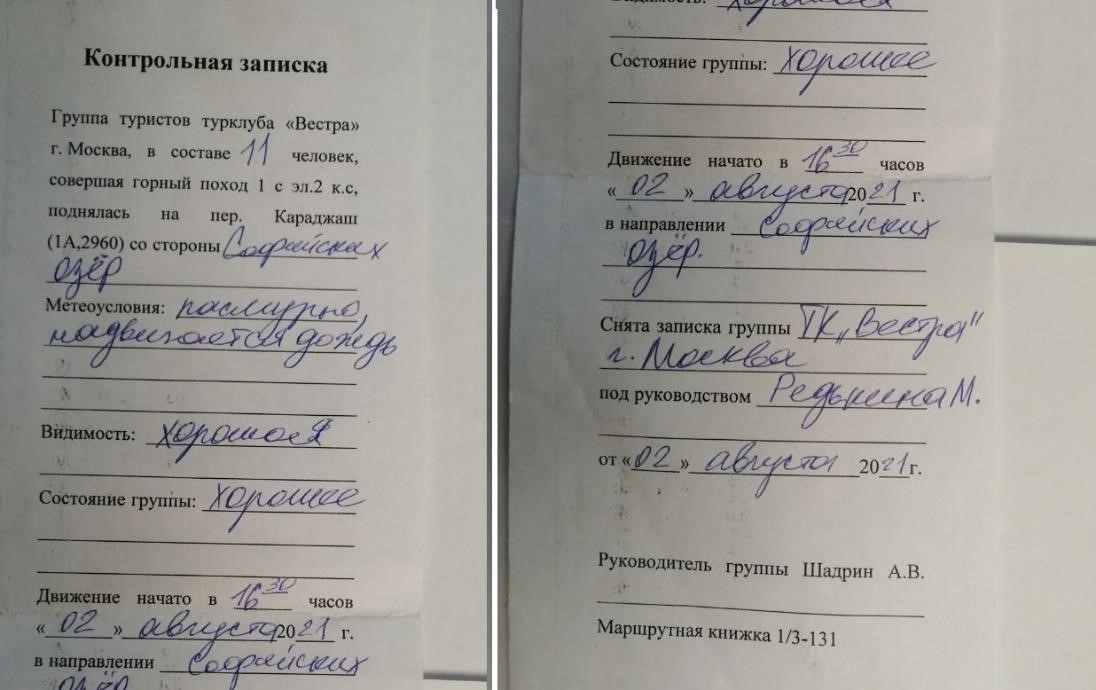 Контрольная записка
Группа туристов турклуба «Вестра»
г. Москва, в составе 11 человек,
совершая горный поход 1 с эл.2 к.с,
поднялась на пер. Караджаш
(1А,2960) со стороны Софийских
озёр
Метеоусловия: пасмурно,
надвигается дождь
Видимость: хорошая
Состояние группы: хорошее
Движение начато в 16 30 часов
«02» августа 2021 г.
в направлении Софийских
озёр
Видимость: хорошая
Состояние группы: хорошее
Движение начато в 16 30 часов
«02» августа 2021 г.
в направлении Софийских
озёр.
Снята записка группы ТК „Вестра"
г. Москва
под руководством Редькина М.
от «02» августа 2021г.
Руководитель группы Шадрин А.В.
Маршрутная книжка 1/3-131